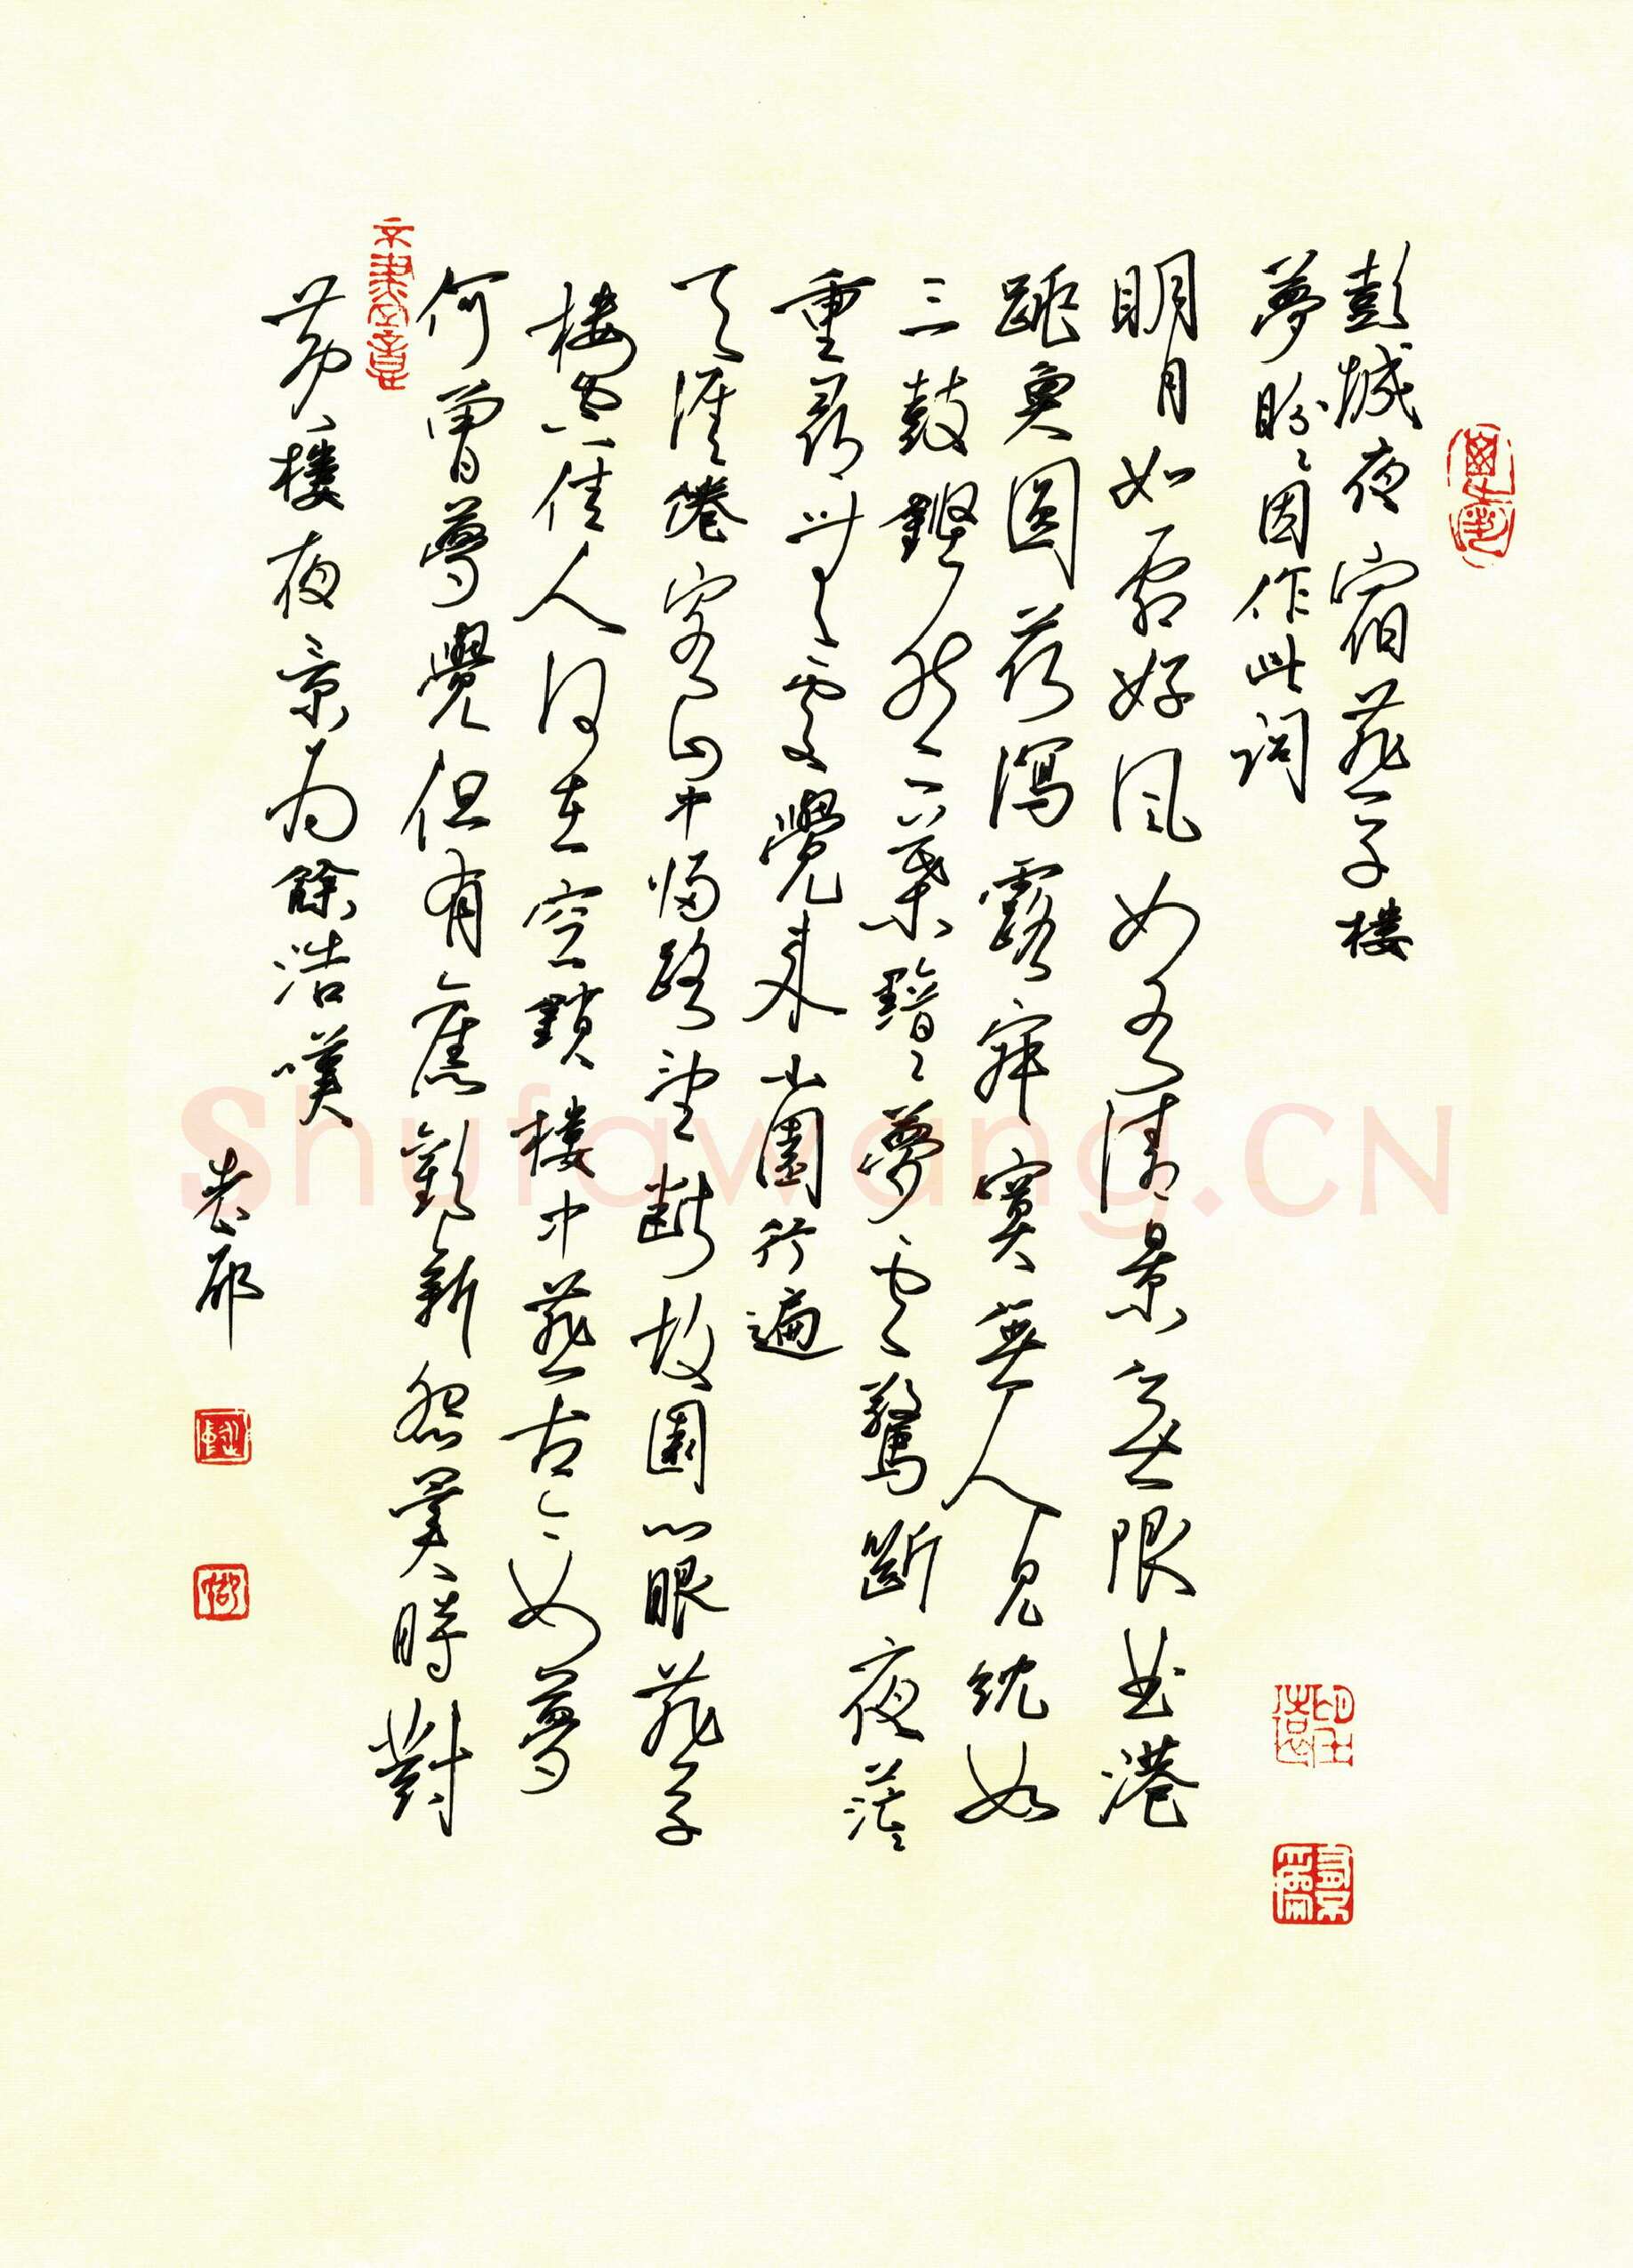 彭城夜宿燕子楼
夢盼盼因作此詞
明月如霜好風如水清景無限曲港
跳魚圓荷瀉露寂寞無人見紞如
三鼓鏗然一葉黯黯夢雲驚斷夜茫茫
重尋無處覺來小園行遍
天涯倦客山中歸路望斷故園心眼燕子
楼空佳人何在空鎖楼中燕古今如夢
何曾夢覺但有舊歡新怨異時對
黃楼夜景為餘浩嘆
Shufawang.CN